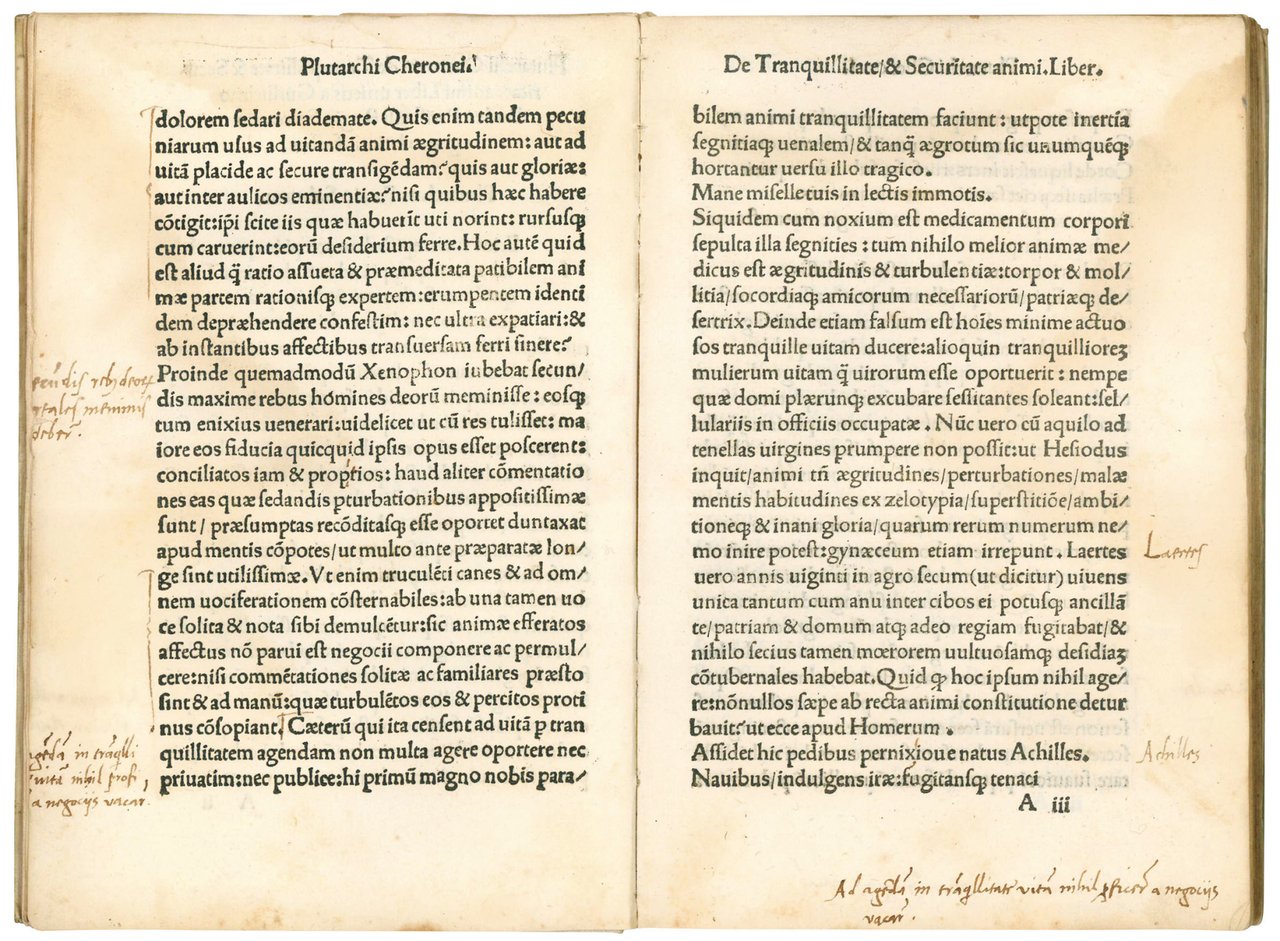 Plutarchi Cheronei.
dolorem sedari diademate. Quis enim tandem pecu
niarum usus ad uitandā animi ægritudinem: aut ad
uitā placide ac secure transigēdam? quis aut gloriæ:
aut inter aulicos eminentiæ? nisi quibus hæc habere
cōtigit: ip̄i scite iis quæ habuerīt uti norint: rursusq;
cum caruerint: eorū desiderium ferre. Hoc autē quid
est aliud q̄ ratio assueta & præmeditata patibilem ani
mæ partem rationisq; expertem: erumpentem identi
dem depræhendere confestim: nec ultra expatiari: &
ab instantibus affectibus transuersam ferri sinere?
Proinde quemadmodū Xenophon iubebat secun/
dis maxime rebus homines deorū meminisse: eosq;
tum enixius uenerari: uidelicet ut cū res tulisset: ma
iore eos fiducia quicquid ipsis opus esset poscerent:
conciliatos iam & propitios: haud aliter cōmentatio
nes eas quæ sedandis ꝑturbationibus appositissimæ
sunt/ præsumptas recōditasq; esse oportet duntaxat
apud mentis cōpotes/ut multo ante præparatæ lon/
ge sint utilissimæ. Vt enim truculēti canes & ad om/
nem uociferationem cōsternabiles: ab una tamen uo
ce solita & nota sibi demulcētur: sic animæ efferatos
affectus nō parui est negocii componere ac permul/
cere: nisi commētationes solitæ ac familiares præsto
sint & ad manū: quæ turbulētos eos & percitos proti
nus cōsopiant. Cæterū qui ita censent ad uitā ꝑ tran
quillitatem agendam non multa agere oportere nec
priuatim: nec publice: hi primū magno nobis para/
agēdā in trāq̄lli
uitā nihil
a negocijs vacar.
De Tranquillitate/& Securitate animi. Liber.
bilem animi tranquillitatem faciunt: utpote inertia
segnitiaq; uenalem/& tanq̄ ægrotum sic unumquēq;
hortantur uersu illo tragico.
Mane miselle tuis in lectis immotis.
Siquidem cum noxium est medicamentum corpori
sepulta illa segnities: tum nihilo melior animæ me/
dicus est ægritudinis & turbulentiæ: torpor & mol/
litia/socordiaq; amicorum necessariorū/patriæq; de/
sertrix. Deinde etiam falsum est hoīes minime actuo
sos tranquille uitam ducere: alioquin tranquilliorez
mulierum uitam q̄ uirorum esse oportuerit: nempe
quæ domi plærunq; excubare sessitantes soleant: sel/
lulariis in officiis occupatæ. Nūc uero cū aquilo ad
tenellas uirgines prumpere non possit: ut Hesiodus
inquit/animi tn̄ ægritudines/perturbationes/malæ
mentis habitudines ex zelotypia/superstitiōe/ambi/
tioneq; & inani gloria/quarum rerum numerum ne/
mo inire potest: gynæceum etiam irrepunt. Laertes
uero annis uiginti in agro secum (ut dicitur) uiuens
unica tantum cum anu inter cibos ei potusq; ancillā
te/patriam & domum atq; adeo regiam fugitabat/&
nihilo secius tamen mœrorem uultuosamq; desidiaz
cōtubernales habebat. Quid ꝙ hoc ipsum nihil age/
re: nōnullos sæpe ab recta animi constitutione detur
bauit? ut ecce apud Homerum.
Assidet hic pedibus pernix ioue natus Achilles.
Nauibus/indulgens iræ: fugitansq; tenaci
A iii
Laertes
Achilles
Ad agēdā in trāq̄llitate vitā nihil ꝓficer̄ a negocijs
vacar̄.